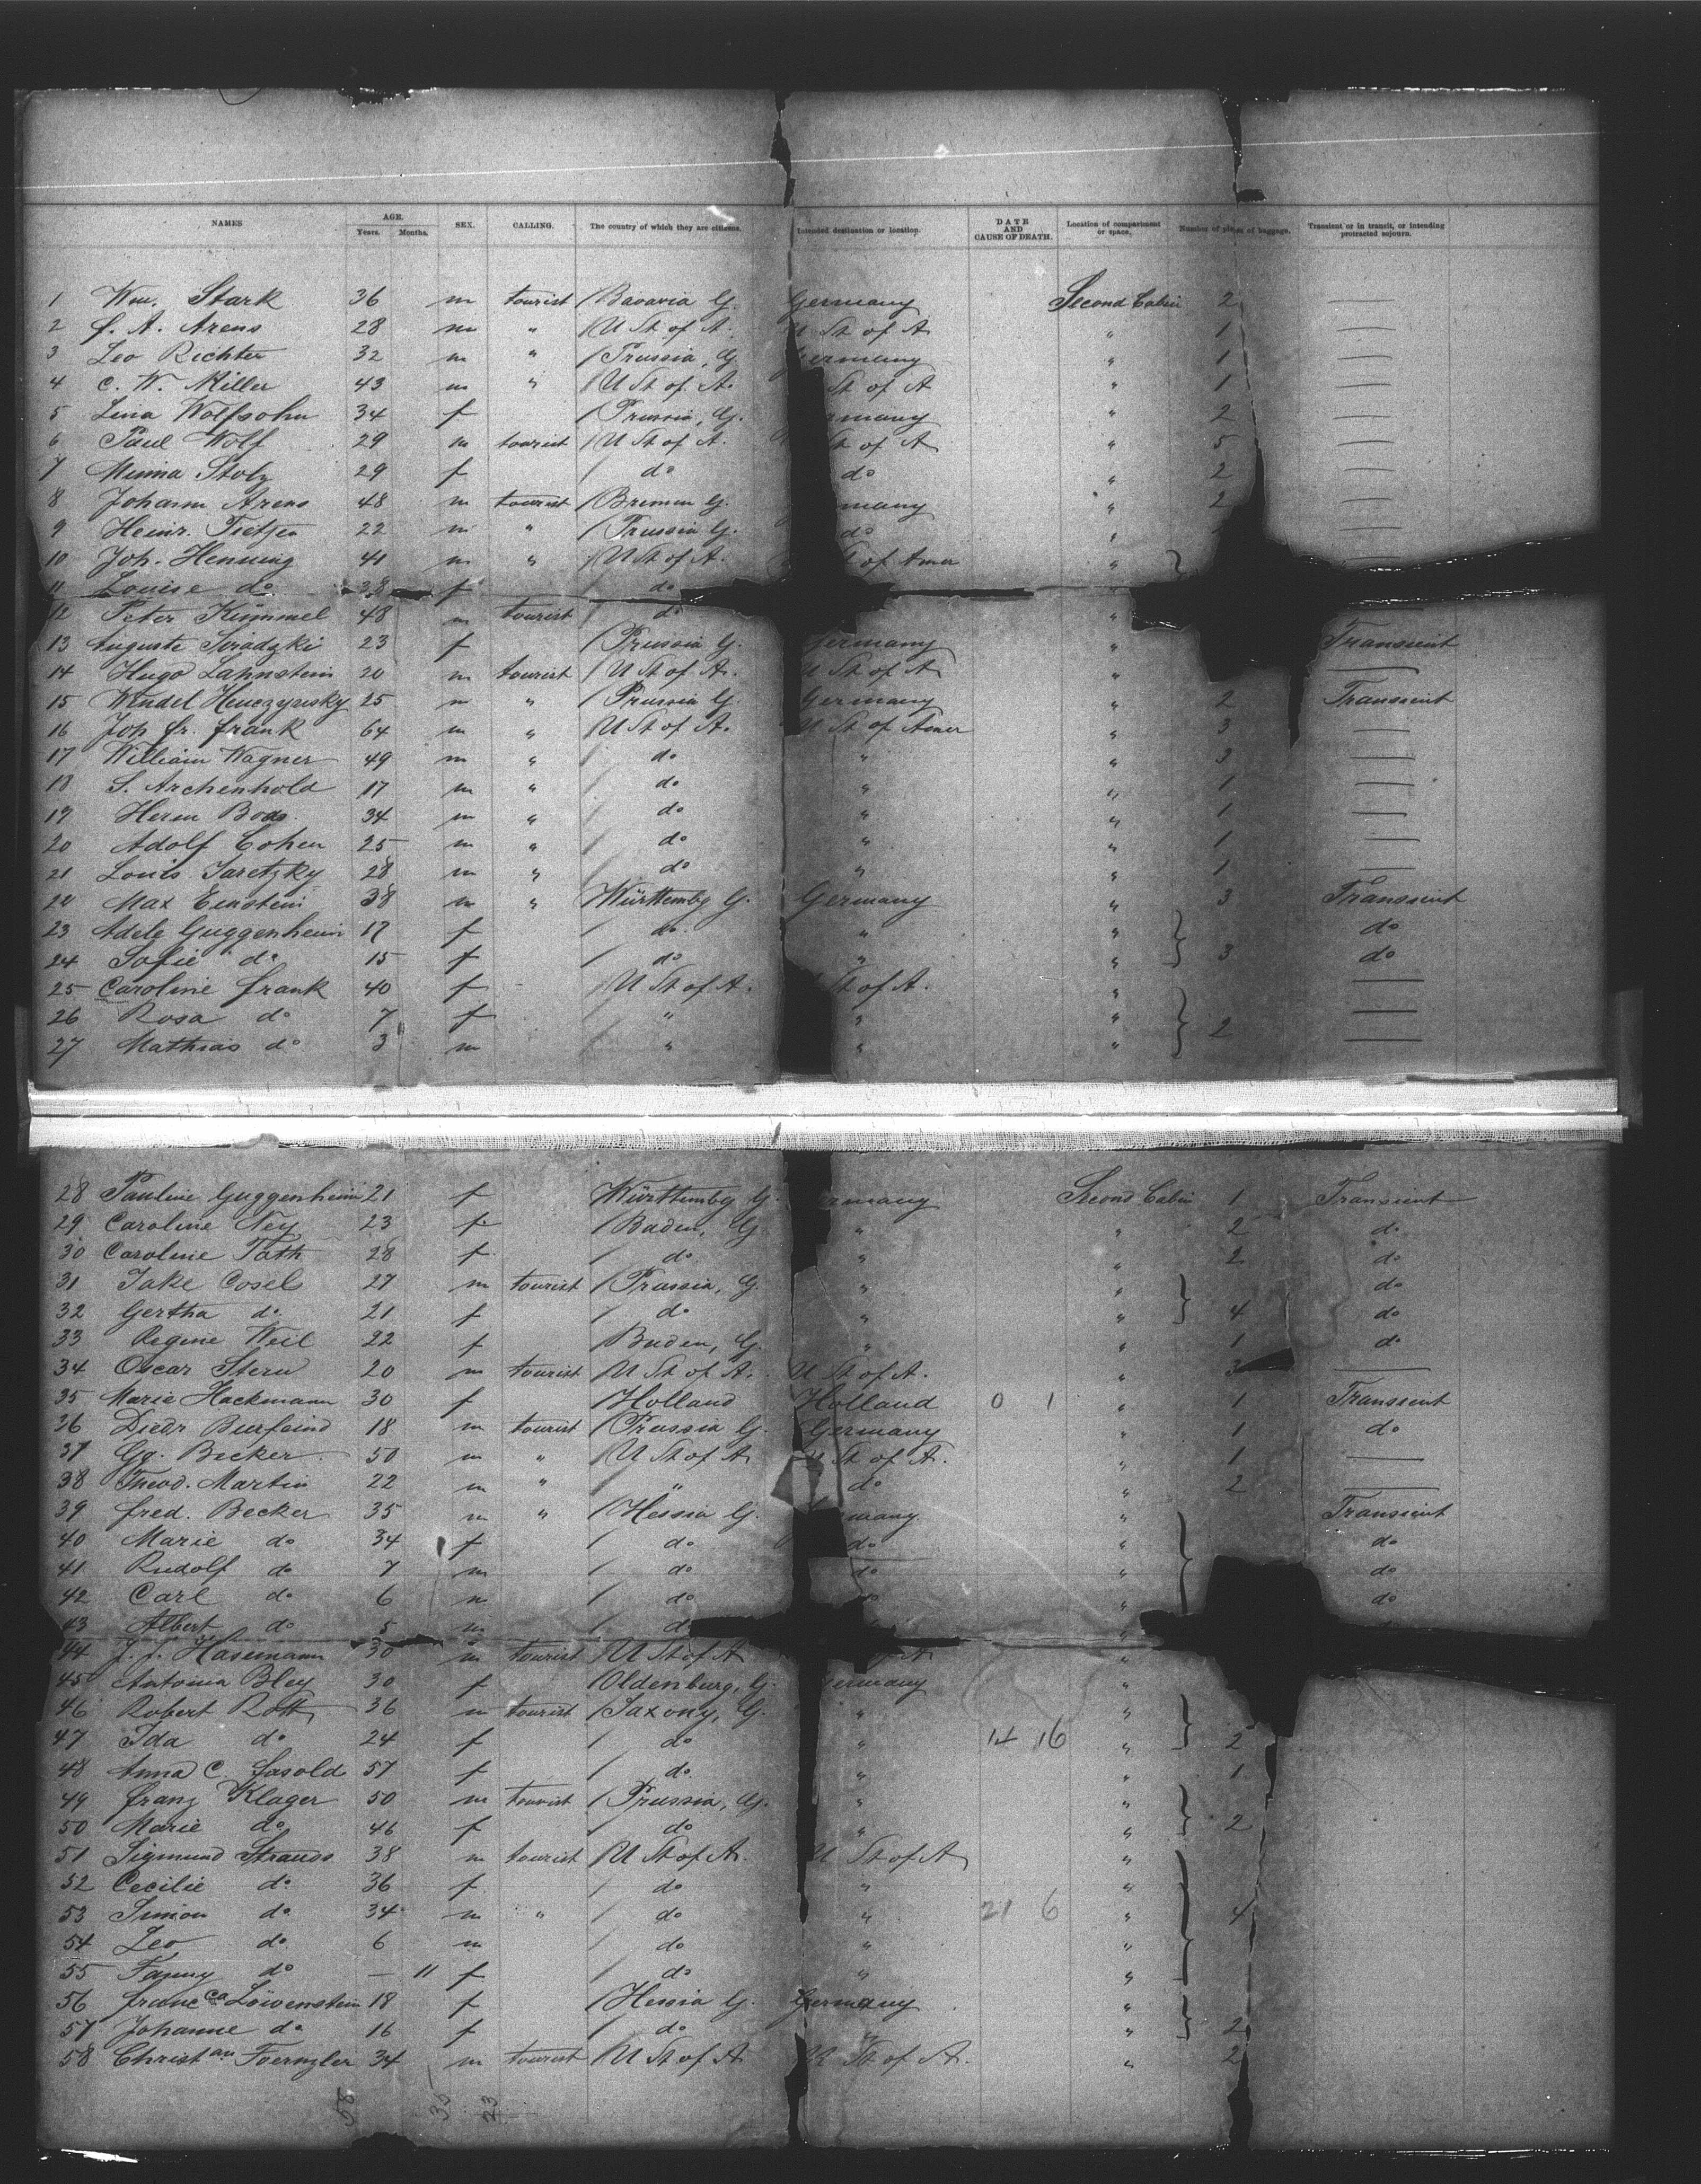 NAMES AGE. Years. Months. SEX. CALLING. The country of which they are citizens. Intended destination or location. DATE AND CAUSE OF DEATH. Location of compartment or space. Number of pieces of baggage. Transient or in transit, or intending protracted sojourn.
1 Wm. Stark 36 m tourist Bavaria G. Germany Second Cabin 2 —
2 f. A. Arens 28 m " U St of A. U St of A " 1 —
3 Leo Richter 32 m " Prussia, G. ermany " 1 —
4 C. W. Miller 43 m " U St of A. St of A " 1 —
5 Lina Wolfsohn 34 f Prussia, G. many " 2 —
6 Paul Wolf 29 m tourist U St of A. St of A " 5 —
7 Minna Stolz 29 f do do " 2 —
8 Johann Arens 48 m tourist Bremen G. many " 2 —
9 Heinr. Tietjen 22 m " Prussia G. do "
10 Joh. Henning 41 m " U St of A. St of Amer "
11 Louise do 38 f do
12 Peter Kümmel 48 m tourist do "
13 Auguste 23 f Prussia G. Germany " Transient
14 Hugo Lahnstein 20 m tourist U St of A. U St of A " —
15 Wendel 25 m " Prussia G. Germany " 2 Transient
16 Joh fr. frank 64 m " U St of A. U St of Amer " 3 —
17 William Wagner 49 m " do " " 3 —
18 S. Archenhold 17 m " do " " 1 —
19 Herm 34 m " do " " 1 —
20 Adolf Cohen 25 m " do " " 1 —
21 Louis Jaretzky 28 m " do " " 1 —
22 Max Einstein 38 m " Württembg G. Germany " 3 Transient
23 Adele Guggenheim 17 f do " " do
24 Sofie do 15 f do " " 3 do
25 Caroline frank 40 f U St of A. St of A. " —
26 Rosa do 7 f " " " 2 —
27 Mathias do 3 m " " " —
28 Pauline Guggenheim 21 f Württembg G. ermany Second Cabin 1 Transient
29 Caroline Ney 23 f Baden, G. " " 2 do
30 Caroline Tath 28 f do " " 2 do
31 Jake Cosel 27 m tourist Prussia, G. " " do
32 Gertha do 21 f do " " 4 do
33 Regine Weil 22 f Baden, G. " " 1 do
34 Oscar Stern 20 m tourist U St of A. U St of A. " 3 —
35 Marie Hackmann 30 f Holland Holland 0 1 " 1 Transient
36 Diedr Buerfeind 18 m tourist Prussia G. Germany " 1 do
37 Gg. Becker 50 m " U St of A U St of A. " 1 —
38 Theod. Martin 22 m " " do " 2 —
39 fred. Becker 35 m " Hessia G. many " Transient
40 Marie do 34 f do do " do
41 Rudolf do 7 m do do " do
42 Carl do 6 m do do " do
43 Albert do 5 m do "
44 J. J. Hasemann 30 m tourist U St of A A "
45 Antonia Bley 30 f Oldenburg, G. ermany "
46 Robert Roth 36 m tourist Saxony, G. " "
47 Ida do 24 f do " 14 16 " 2
48 Anna C. fasold 57 f do. " " 1
49 franz Klager 50 m tourist Prussia, G. " "
50 Marie do 46 f do " " 2
51 Sigmund Strauss 38 m tourist U St of A. U St of A "
52 Cecilie do 36 f do " "
53 Simon do 34 m " do " 21 6 " 4
54 Leo do 6 m do " "
55 Fanny do — 11 f do " "
56 franc ca Löwenstein 18 f Hessia G. Germany "
57 Johanne do 16 f do " " 2
58 Christ an 34 m tourist U St of A U St of A. " 2
58 35 23